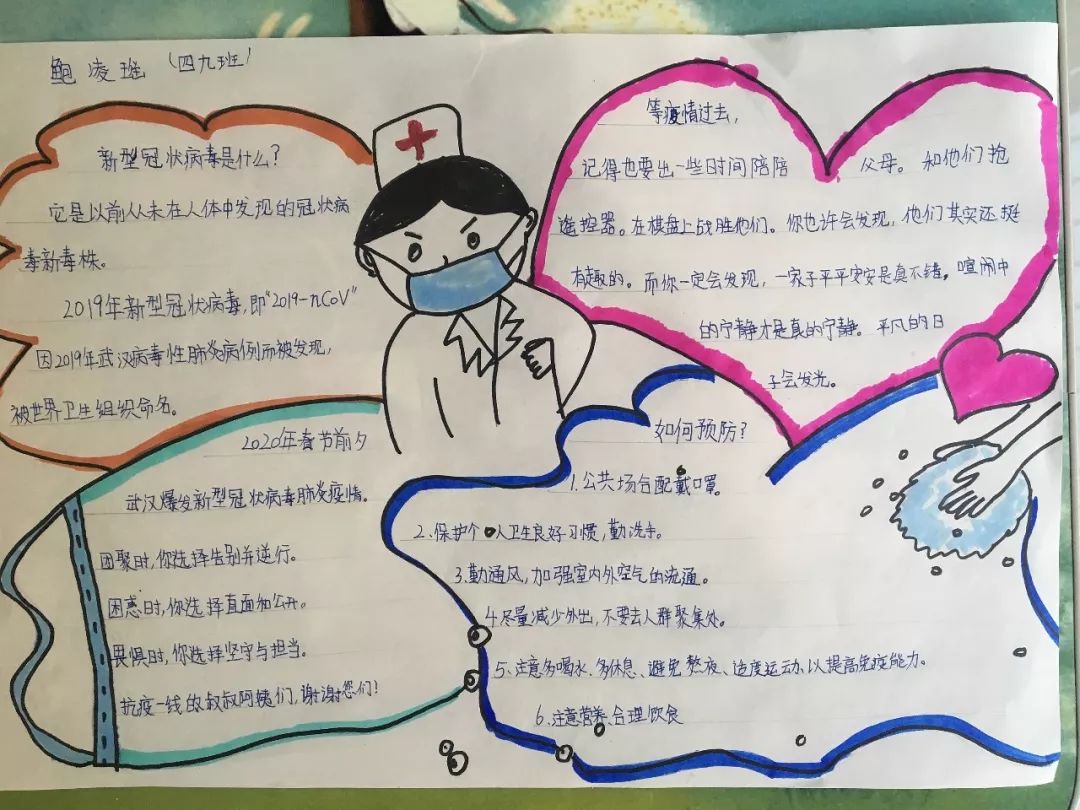 鲍凌瑶（四九班）
新型冠状病毒是什么？
它是以前从未在人体中发现的冠状病
毒新毒株。
2019年新型冠状病毒，即“2019-nCoV”
因2019年武汉病毒性肺炎病例而被发现，
被世界卫生组织命名。
等疫情过去，
记得也要出一些时间陪陪父母。和他们抢
遥控器。在棋盘上战胜他们。你也许会发现，他们其实还挺
有趣的。而你一定会发现，一家子平平安安是真不错。喧闹中
的宁静才是真的宁静。平凡的日
子会发光。
2020年春节前夕
武汉爆发新型冠状病毒肺炎疫情。
团聚时，你选择告别并逆行。
困惑时，你选择直面和公开。
畏惧时，你选择坚守与担当。
抗疫一线的叔叔阿姨们，谢谢您们！
如何预防？
1.公共场合配戴口罩。
2.保护个人卫生良好习惯，勤洗手。
3.勤通风，加强室内外空气的流通。
4.尽量减少外出，不要去人群聚集处。
5、注意多喝水、多休息、避免熬夜、适度运动、以提高免疫能力。
6、注意营养、合理饮食